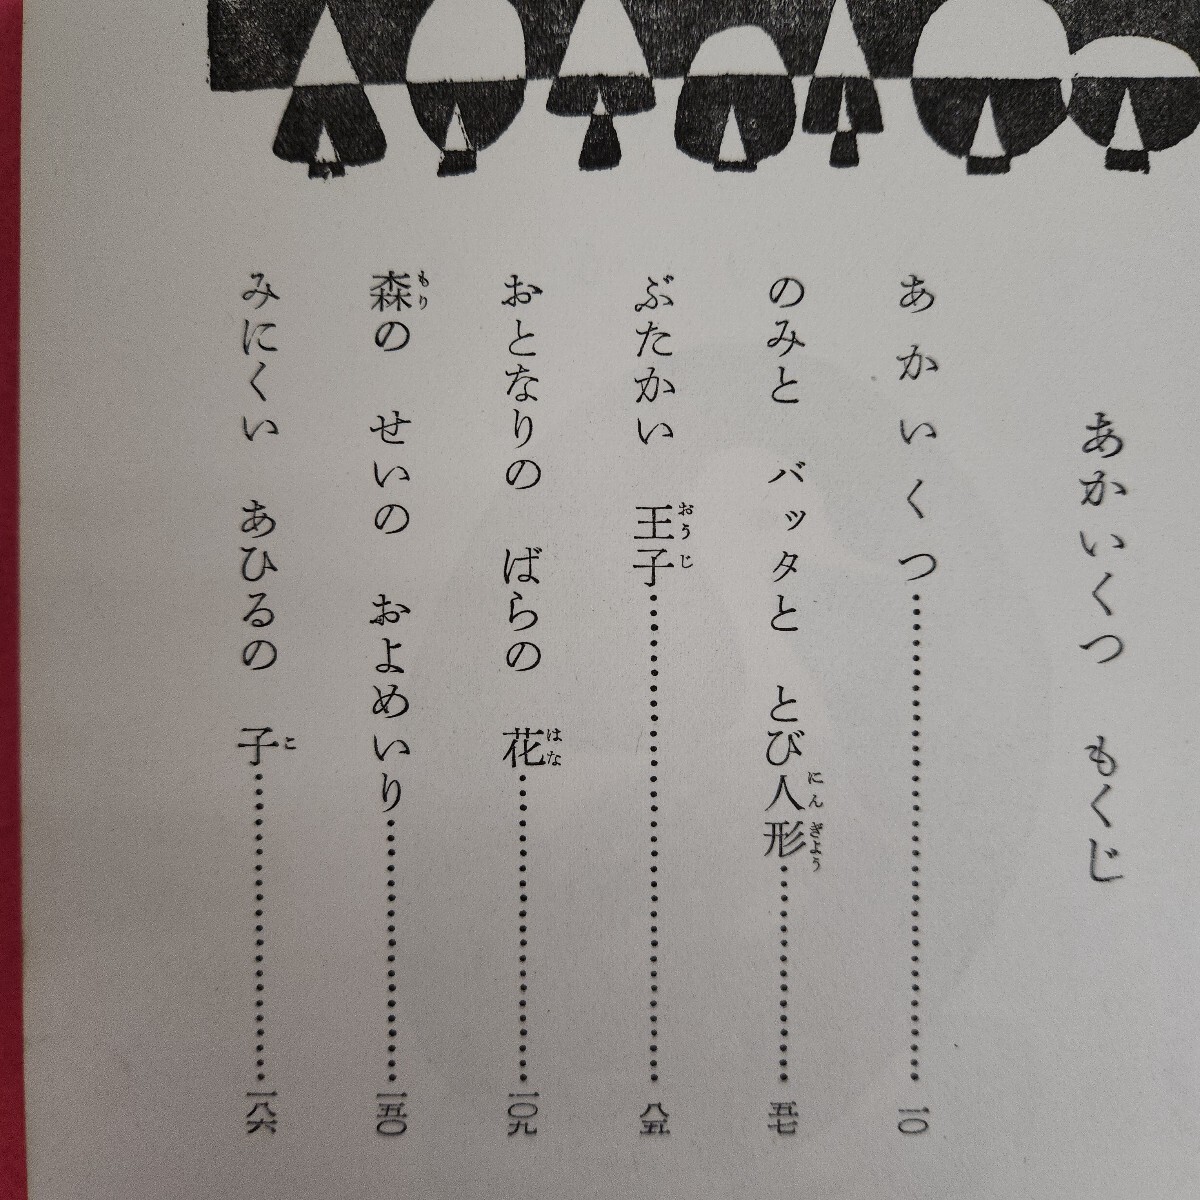 あかいくつ　もくじ
あかいくつ……………………一〇
のみと　バッタと　とび人形にんぎよう……………五七
ぶたかい　王子おうじ……………………八五
おとなりの　ばらの　花はな……………一〇九
森もりの　せいの　およめいり……………一五〇
みにくい　あひるの　子こ……………一八六